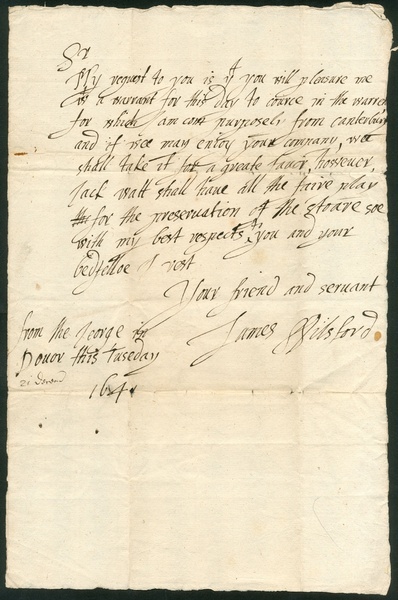 Sr
My request to you is yt you will pleasure me
wt a warrant for this day to course in the warren
for which I am com purposely from canterbury
and if wee may enjoy your company, wee
shall take it for a greate favor, however,
Jack watt shall have all the faire play
for the preservation of the game soe
with my best respects to you and your
bedfelloe I rest
Your friend and servant
James Wilsford
from the George in
Dover this tuseday
164